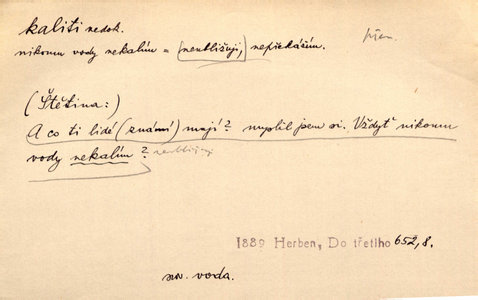 kaliti nedok.
nikomu vody nekalím = (neubližuji,) nepřekážím.
přen.
(Štětina:)
A co ti lidé (známí) mají? myslil jsem si. Vždyť nikomu
vody nekalím? neubližuji
1889 Herben, Do třetího 652, 8.
sv. voda.